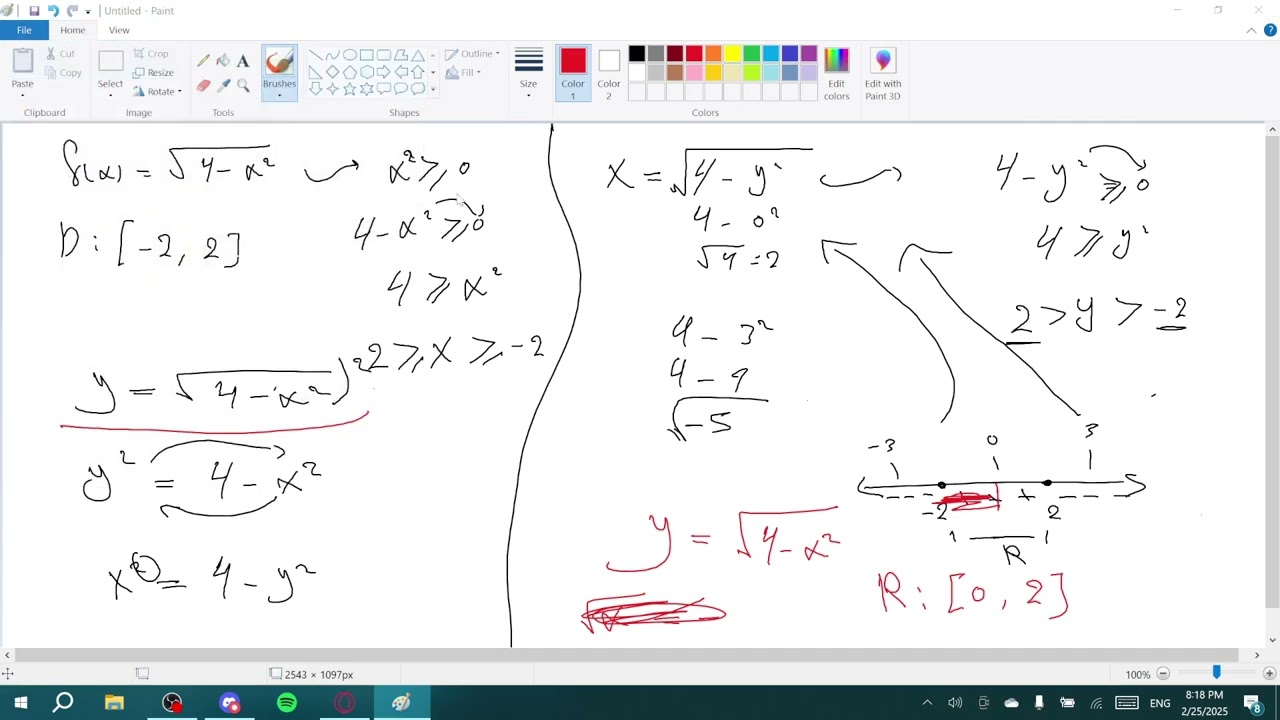 Untitled - Paint
File
Home
View
Paste
Cut
Copy
Clipboard
Select
Crop
Resize
Rotate
Image
A
Tools
Brushes
Shapes
Outline
Fill
Size
Color 1
Color 2
Edit colors
Colors
Edit with Paint 3D
f(x) = √4-x² → x² ≥ 0
D: [-2, 2]
4-x² ≥ 0
4 ≥ x²
2 ≥ x ≥ -2
y = √4-x² )²
y² = 4-x²
x² = 4-y²
x = √4-y² → 4-y² ≥ 0
4-0²
√4 = 2
4 ≥ y²
2 > y > -2
4-3²
4-9
√-5
-3 0 3
- - - + + - - -
-2 2
R
y = √4-x²
R: [0, 2]
2543 × 1097px
100%
ENG
8:18 PM
2/25/2025
8